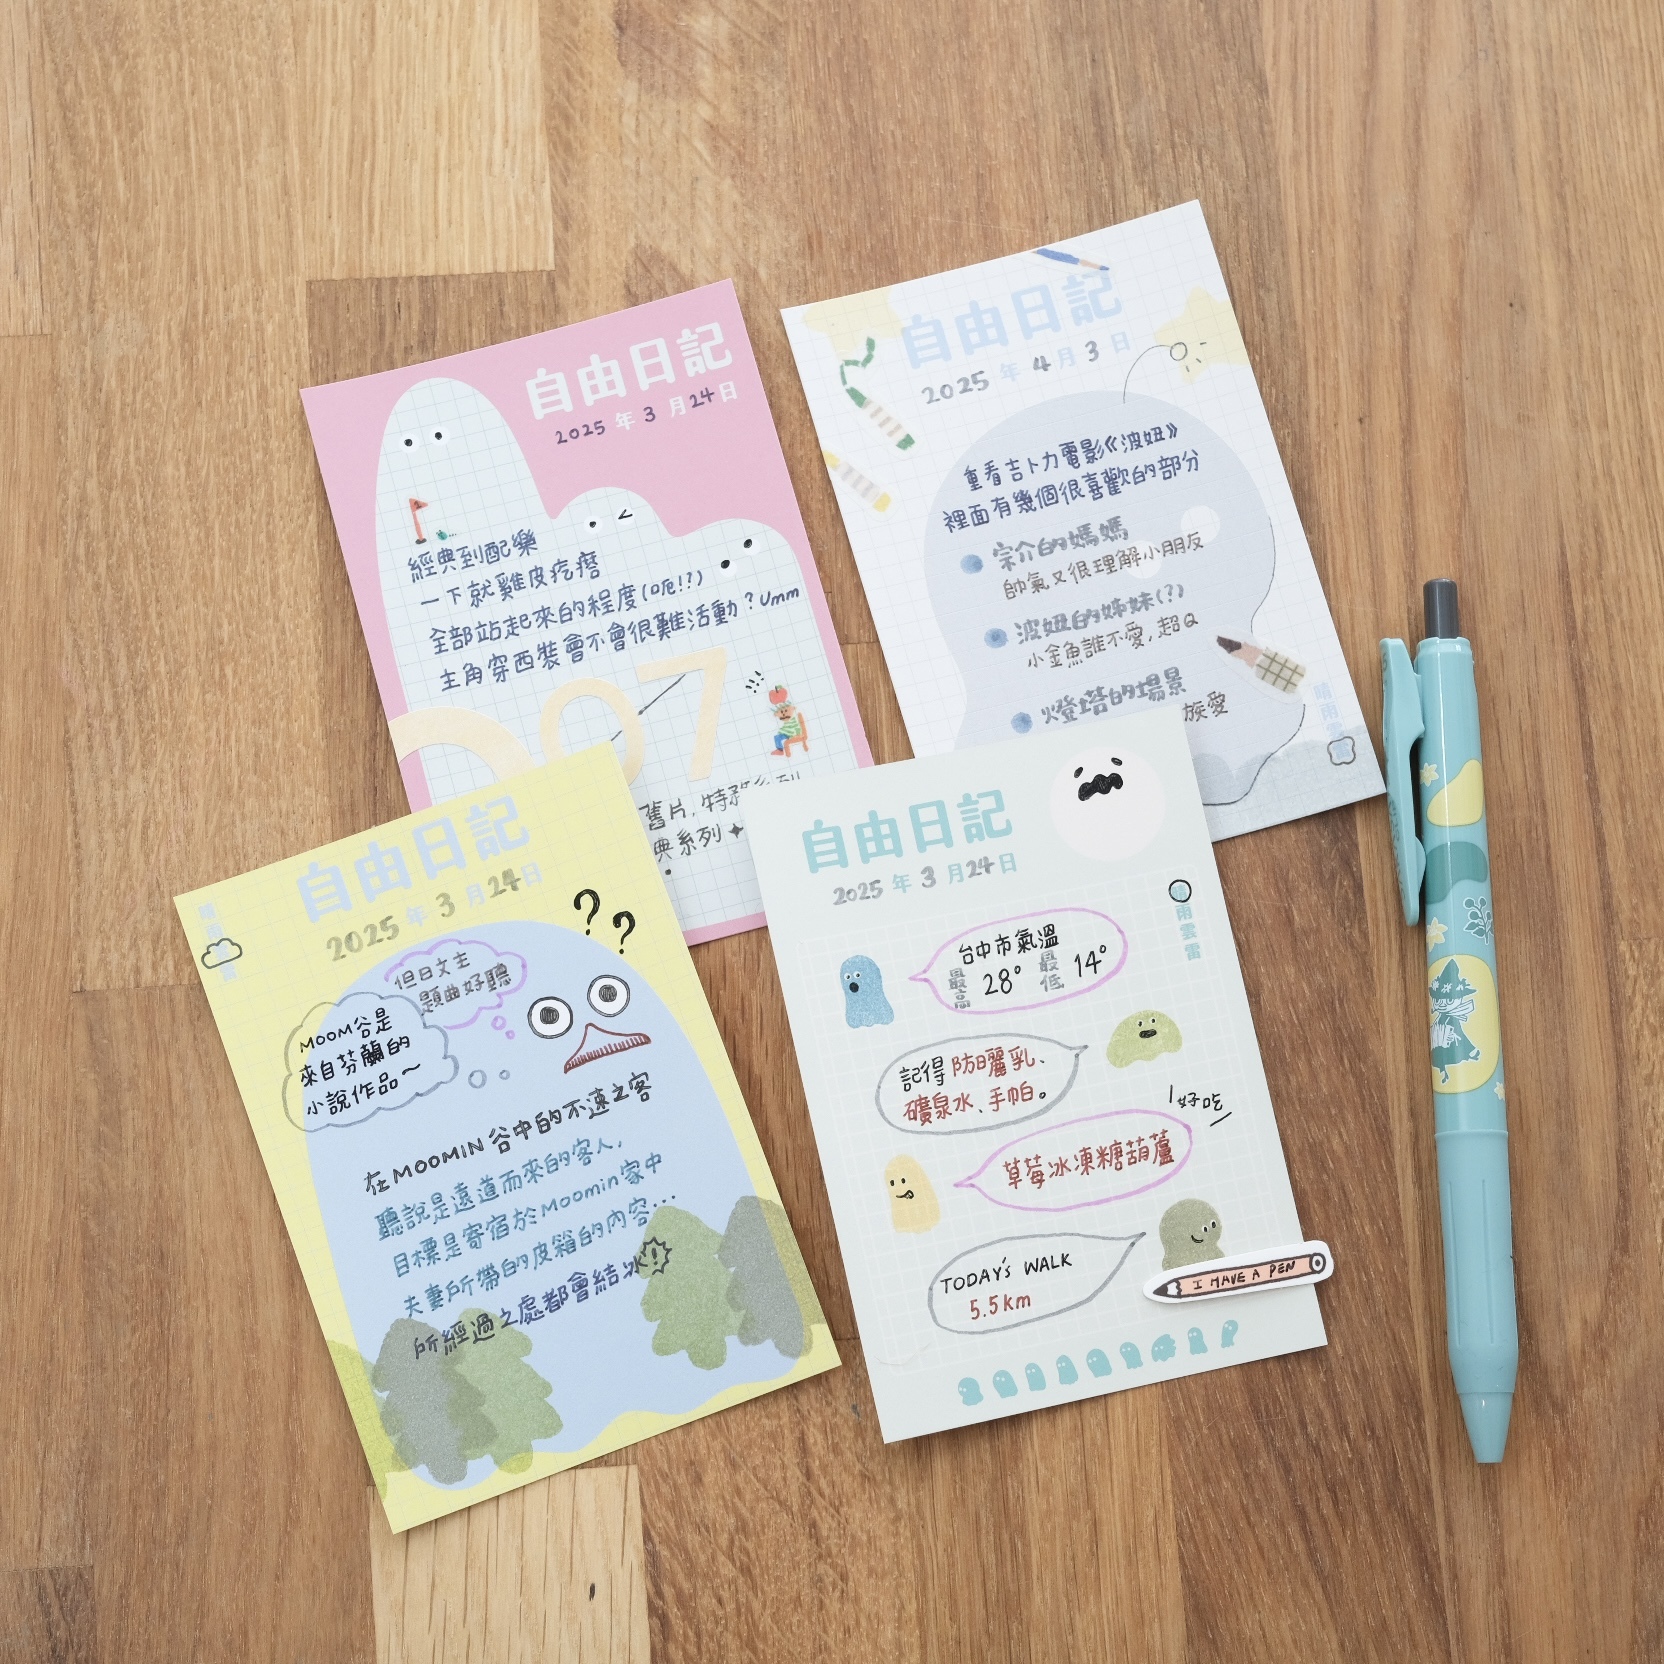 自由日記
2025 年 3 月 24 日
經典到配樂
一下就雞皮疙瘩
全部站起來的程度(呃!?)
主角穿西裝會不會很難活動？Umm
007
舊片,特務系列
典系列✦
自由日記
2025 年 4 月 3 日
重看吉卜力電影《波妞》
裡面有幾個很喜歡的部分
宗介的媽媽
帥氣又很理解小朋友
波妞的姊妹(?)
小金魚誰不愛,超Q
燈塔的場景
族愛
晴雨雲雷
自由日記
2025 年 3 月 24 日
晴雨雲雷
??
但日文主
題曲好聽
MOOM谷是
來自芬蘭的
小說作品～
在MOOMIN谷中的不速之客
聽說是遠道而來的客人,
目標是寄宿於Moomin家中
夫妻所帶的皮箱的內容...
所經過之處都會結冰!
自由日記
2025 年 3 月 24 日
晴雨雲雷
台中市氣溫
最高 28° 最低 14°
記得防曬乳、
礦泉水、手帕。
好吃
草莓冰凍糖葫蘆
TODAY'S WALK
5.5km
I HAVE A PEN